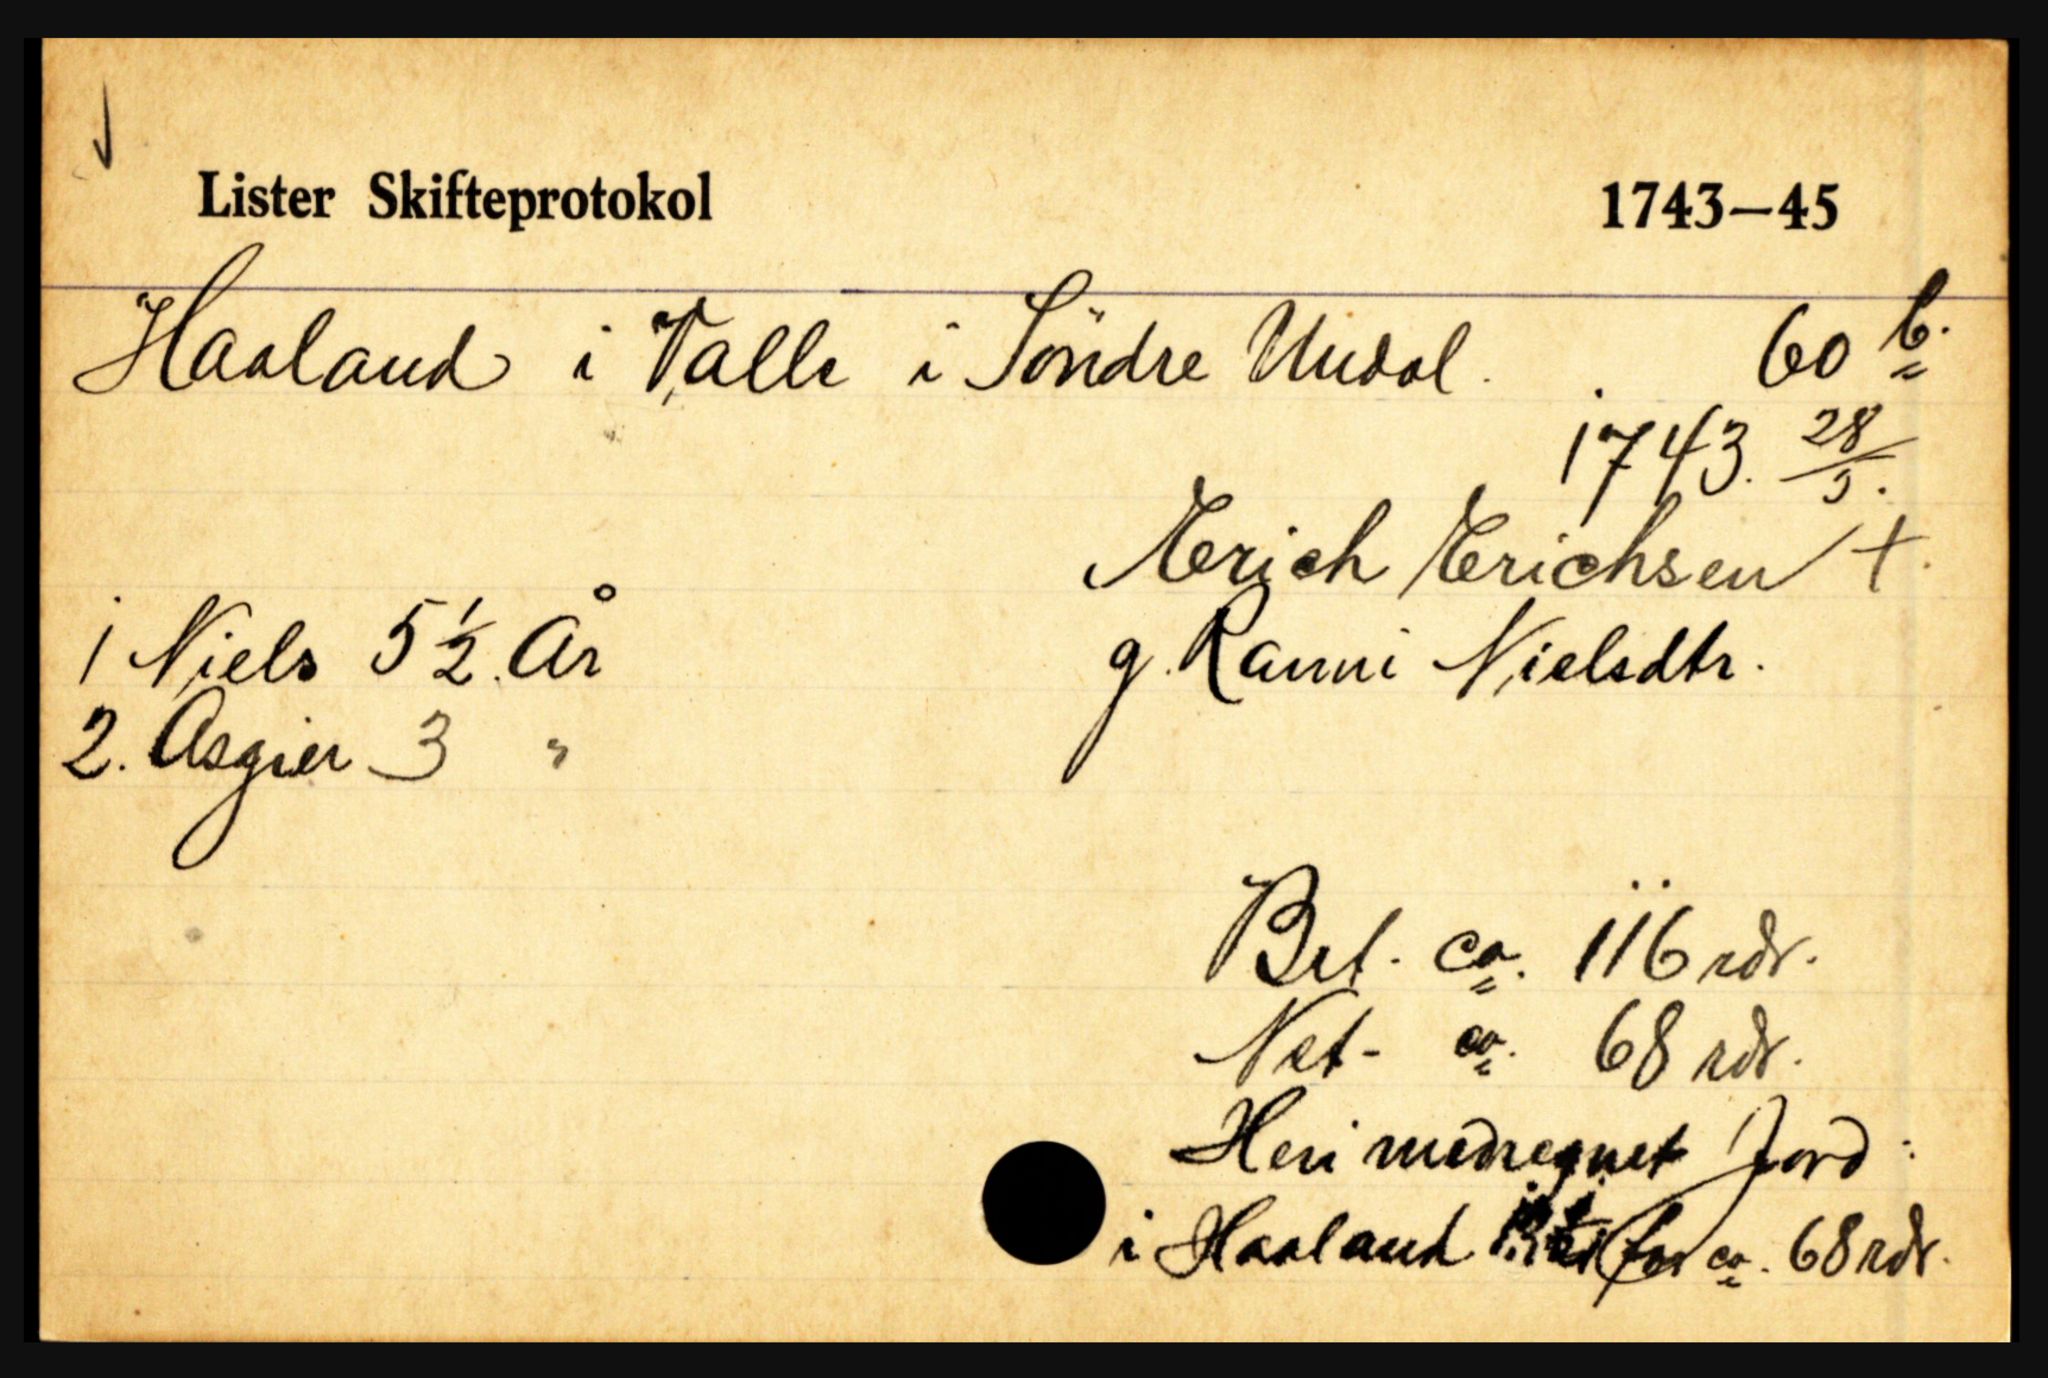 Lister Skifteprotokol 1743—45
Haaland i Valle i Söndre Undal. 60 b.
1743. 28/5.
Erich Erichsen +.
1 Niels 5½ År g. Ranni Nielsdtr.
2. Asgier 3 "
Brt. ca. 116 rdr.
Net- ca. 68 rdr.
Heri medregnet Jord
i Haaland for ca. 68 rdr.